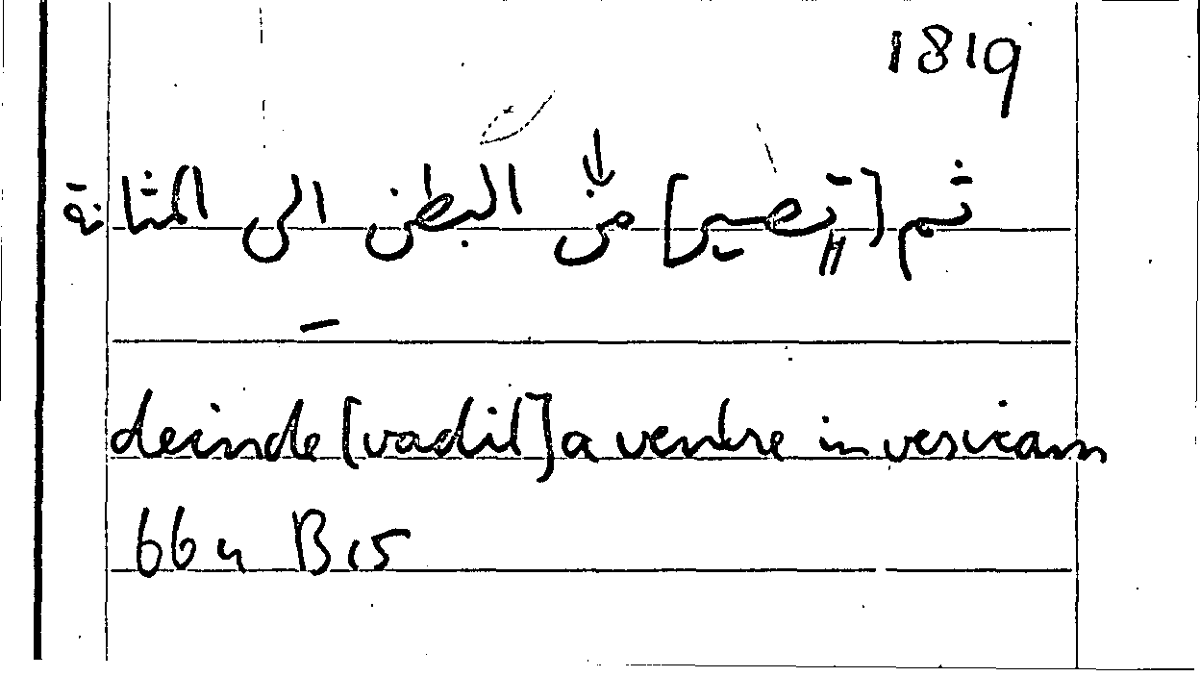 1819
ثم [تصير] من البطن الى المثانة
deinde [vadit] a ventre in vesicam
664 B15